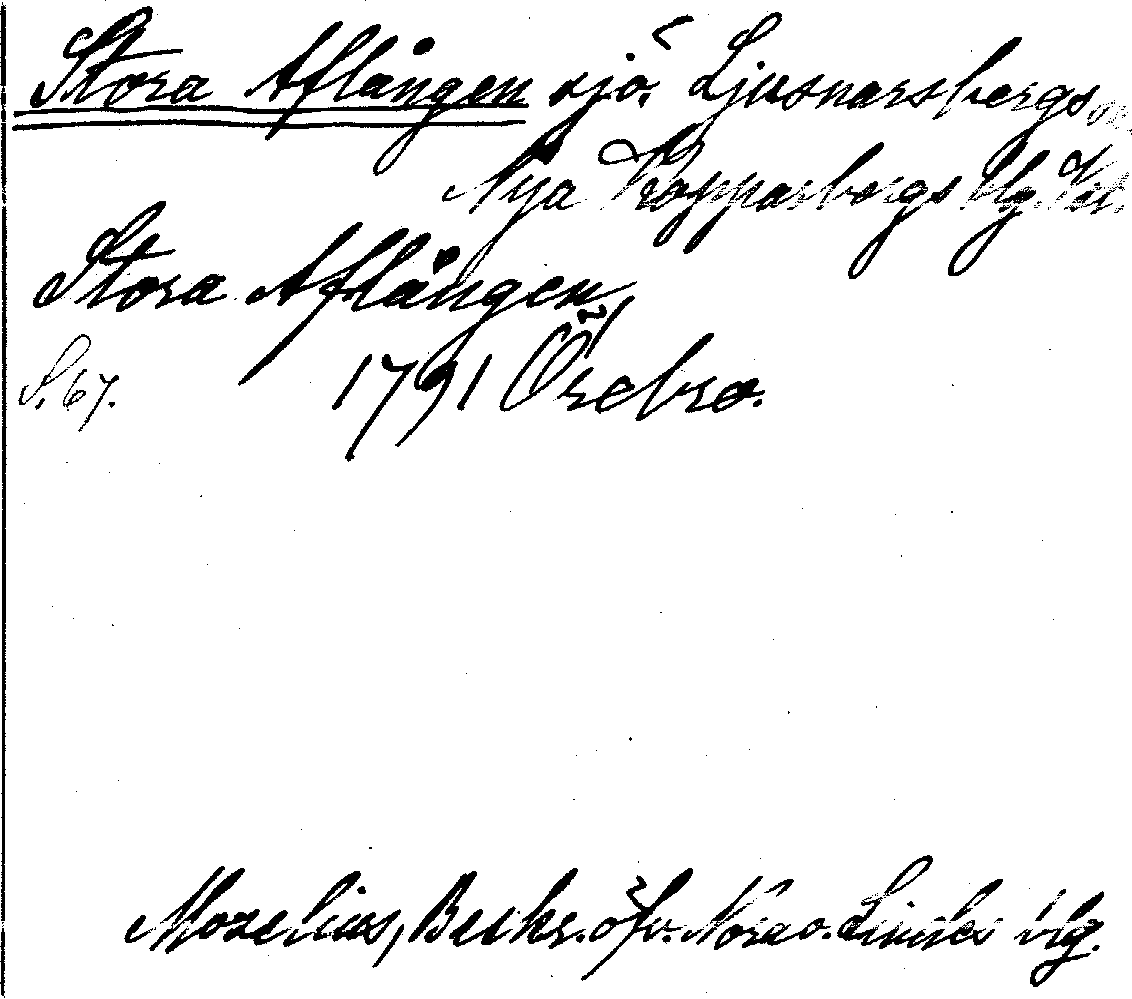 Stora Aflången sjö. Ljusnarsbergs sn.
Nya Kopparbergs blg. Vstm.
Stora Aflången,
S. 67. 1791 Örebro.
Morelius, Beskr. öfv. Nora o. Lindes blg.